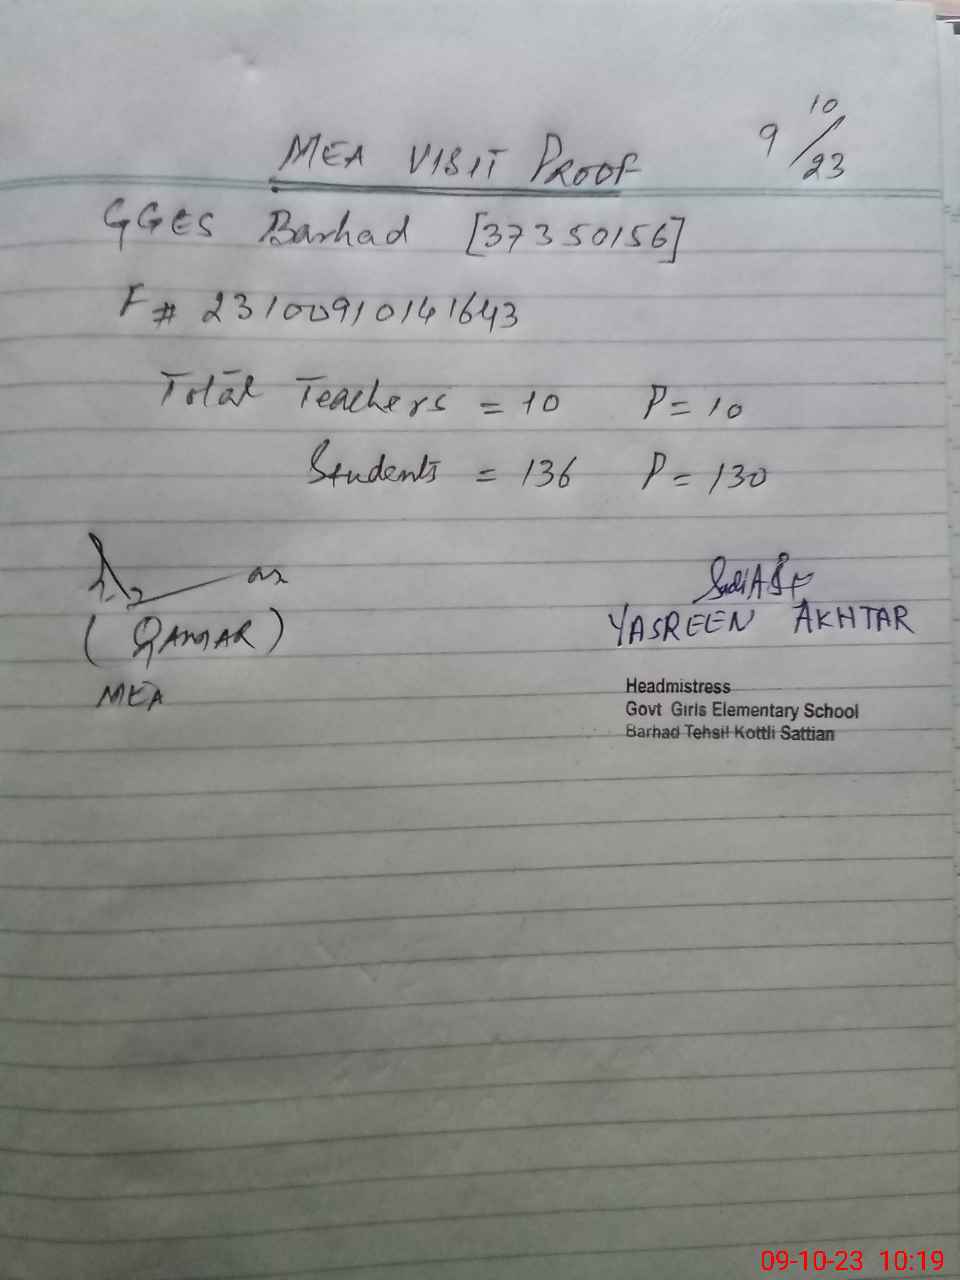 MEA VISIT PROOF
9/10/23
GGES Barhad [37350156]
F# 23100910141643
Total Teachers = 10 P = 10
Students = 136 P = 130
(QAMAR)
MEA
YASREEN AKHTAR
Headmistress
Govt Girls Elementary School
Barhad Tehsil Kottli Sattian
09-10-23 10:19